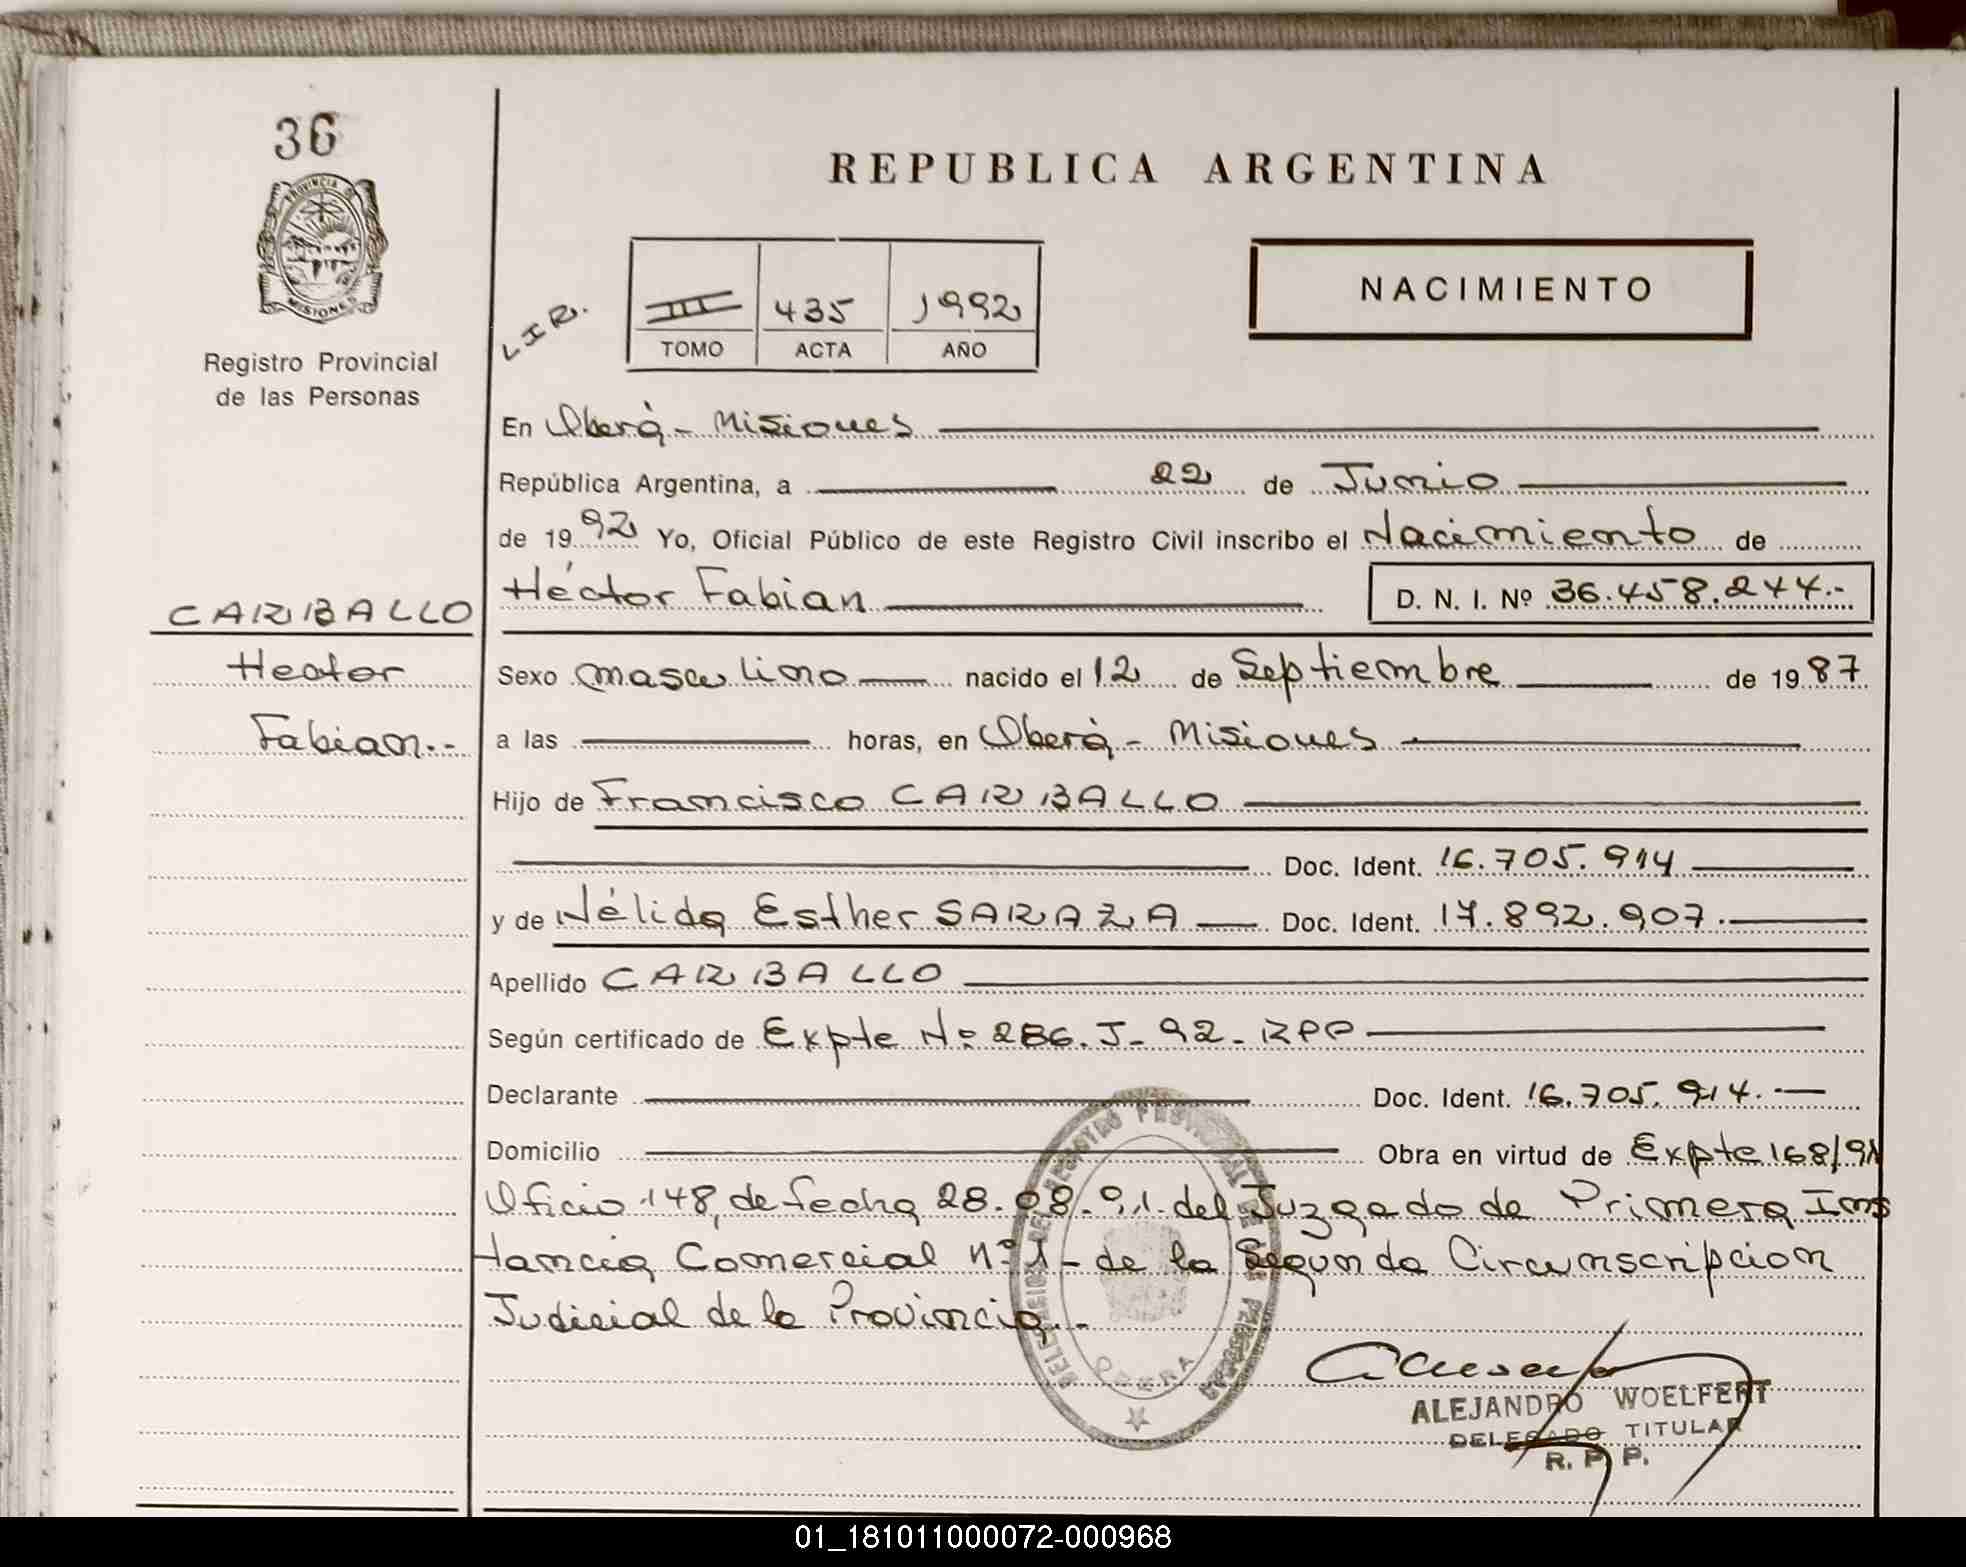 36
PROVINCIA DE
MISIONES
Registro Provincial
de las Personas
CARBALLO
Hector
Fabian.-
REPUBLICA ARGENTINA
L.I.R.
III 435 1992
TOMO ACTA AÑO
NACIMIENTO
En Oberá - Misiones
República Argentina, a 22 de Junio
de 1992 Yo, Oficial Público de este Registro Civil inscribo el Nacimiento de
Héctor Fabian D. N. I. Nº 36.458.244.-
Sexo masculino nacido el 12 de Septiembre de 1987
a las horas, en Oberá - Misiones
Hijo de Francisco CARBALLO
Doc. Ident. 16.705.914
y de Nélida Esther SARAZA Doc. Ident. 17.892.907.
Apellido CARBALLO
Según certificado de Expte Nº 286. J- 92- RPP
Declarante Doc. Ident. 16.705.914.-
Domicilio Obra en virtud de Expte 168/91
Oficio 148, de fecha 28.08.91. del Juzgado de Primera Ins
tancia Comercial nº 1 - de la Segunda Circunscripcion
Judicial de la Provincia.-
DELEGACION DEL REGISTRO PROVINCIAL DE LAS PERSONAS
OBERA
ALEJANDRO WOELFERT
DELEGADO TITULAR
R. P. P.
01_181011000072-000968